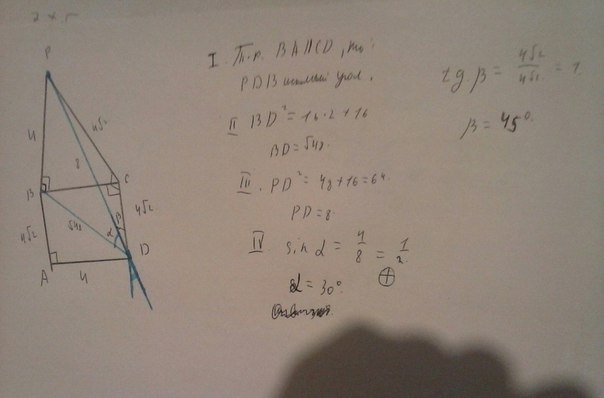 P
4
4√2
8
B
C
4√2
√48
4√2
β
α
D
A
4
I
BA || CD
PDB угол.
II BD² = 16·2+16
BD = √48.
III. PD² = 48+16=64.
PD=8.
IV. sin α = 4/8 = 1/2.
α = 30°.
tg. β = 4√2/4√2 = 1.
β = 45°.